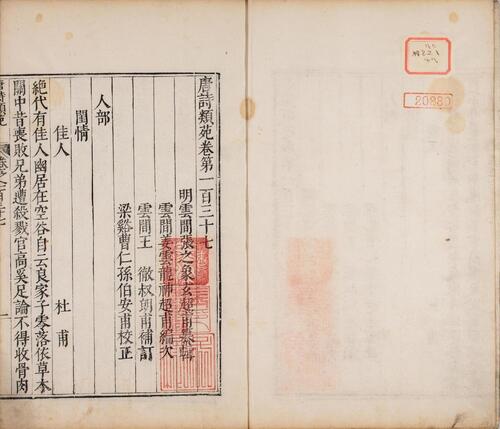 唐詩類苑卷第一百三十七
明雲間張之象玄超甫纂輯
雲間姜雲龍神超甫編次
雲間王　徹叔朗甫補訂
梁谿曹仁孫伯安甫校正
人部
閨情
佳人　杜甫
絶代有佳人幽居在空谷自云良家子零落依草木
關中昔喪敗兄弟遭殺戮官高奚足論不得收骨肉
20280